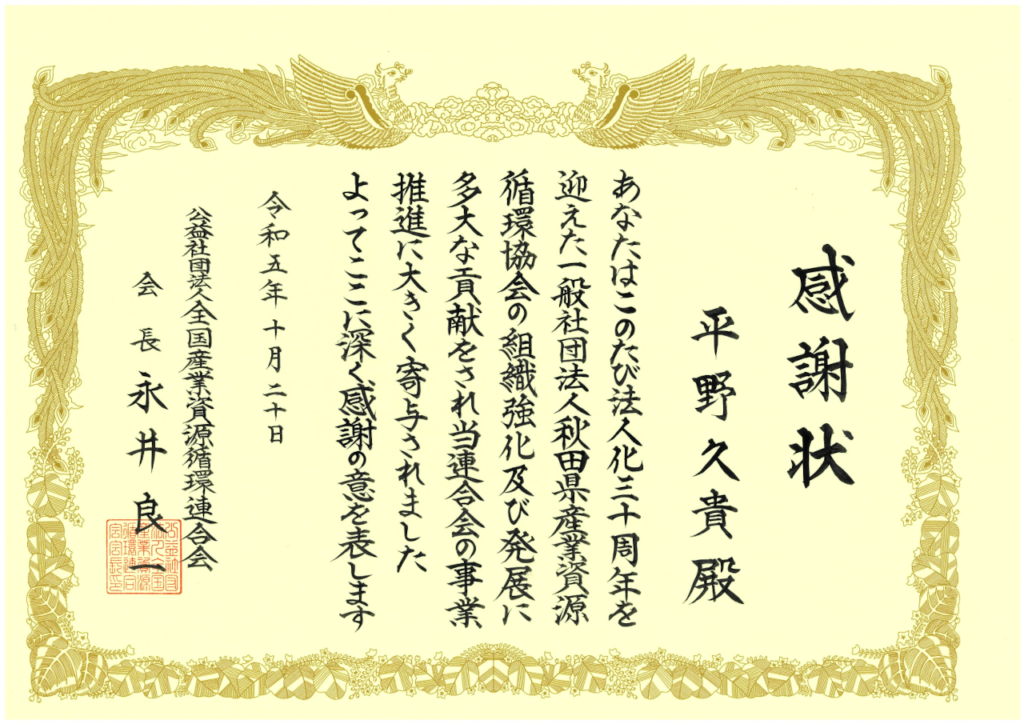 感謝状
平野久貴殿
あなたはこのたび法人化三十周年を
迎えた一般社団法人秋田県産業資源
循環協会の組織強化及び発展に
多大な貢献をされ当連合会の事業
推進に大きく寄与されました
よってここに深く感謝の意を表します
令和五年十月二十日
公益社団法人全国産業資源循環連合会
会長永井良一